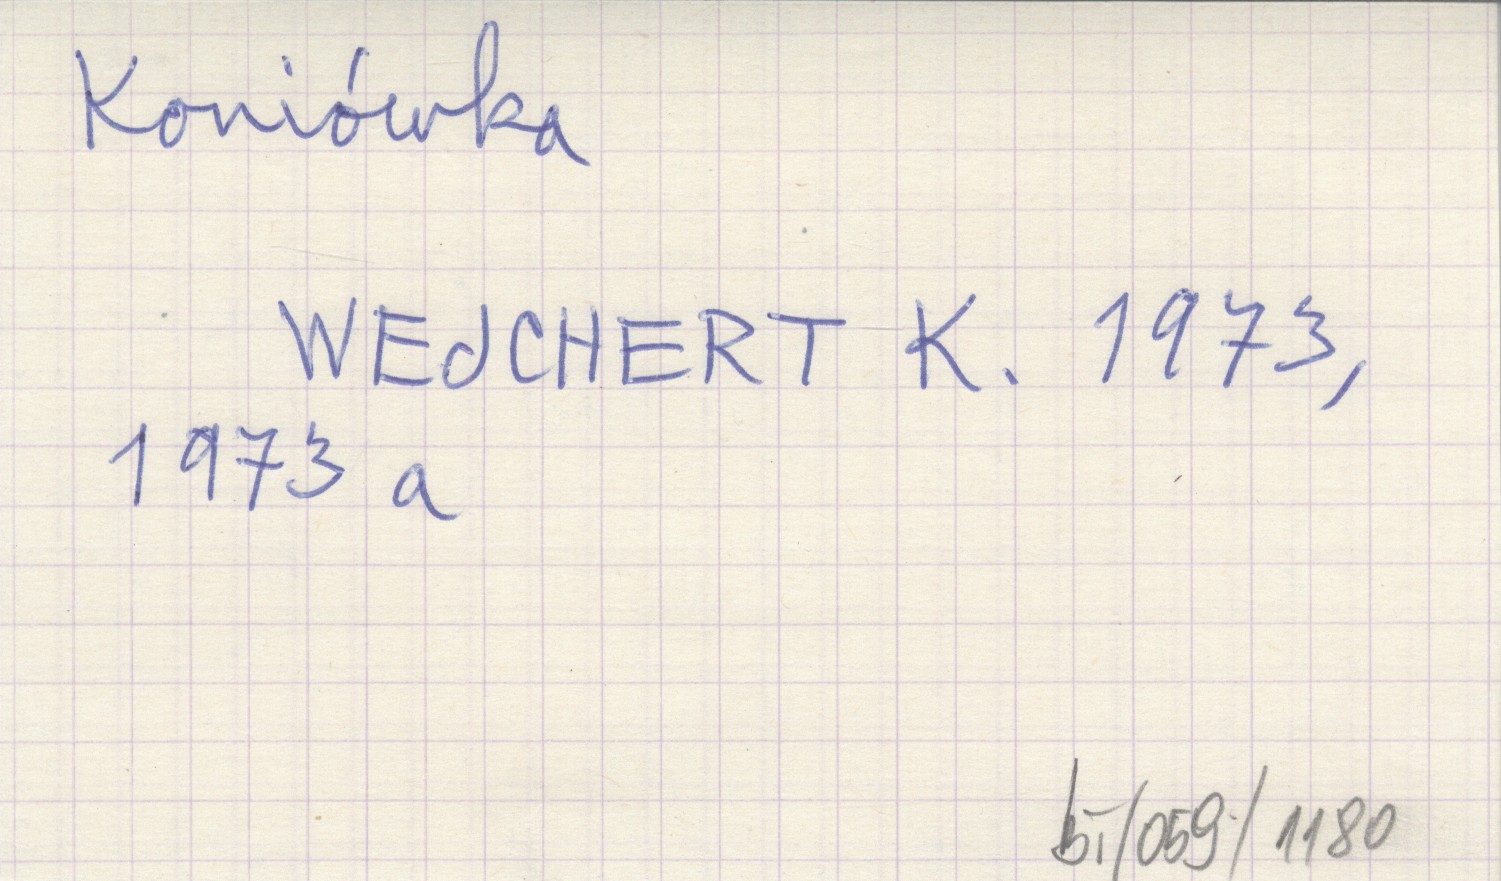 Koniówka
WEJCHERT K. 1973,
1973 a
bi/059/1180